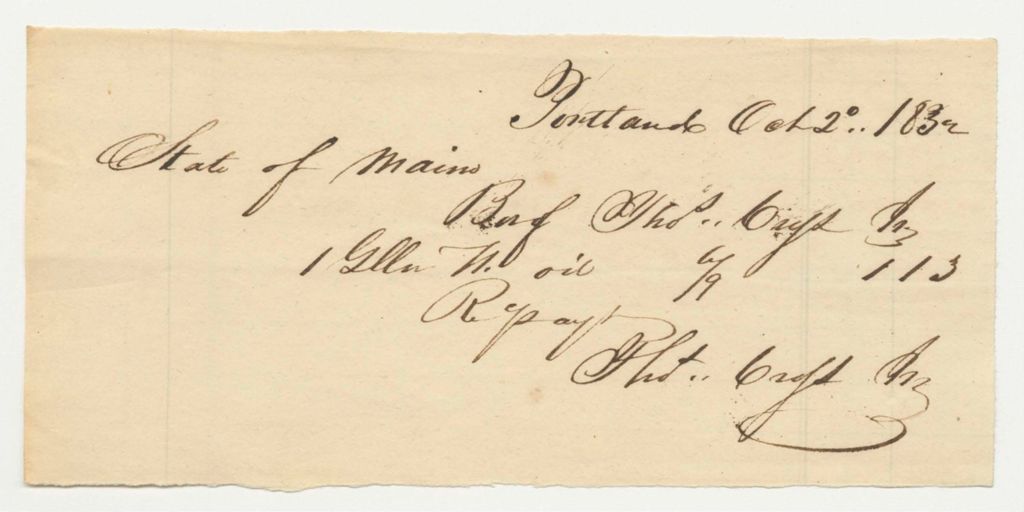 Portland Oct 2º.. 1832
State of Maine
Bot of Thoˢ.. Cross Jr
1 Glln W. oil 6/9 1 13
Rc'pay't
Thoˢ.. Cross Jr